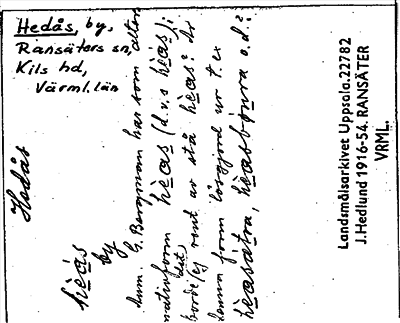 Hedås, by,
Ransäters sn,
Kils hd,
Värml. län
Hedås
hèås
by
hum. G. Bergman har som altern
nativform hèås (d.v.s. hèås);
borde det ej rent av stå hèas? Är
denna form lösgjord ur t.ex
hèasätra, hèasbɷnra o.d.?
Landsmålsarkivet Uppsala.22782
J.Hedlund 1916-54. RANSÄTER
VRML.